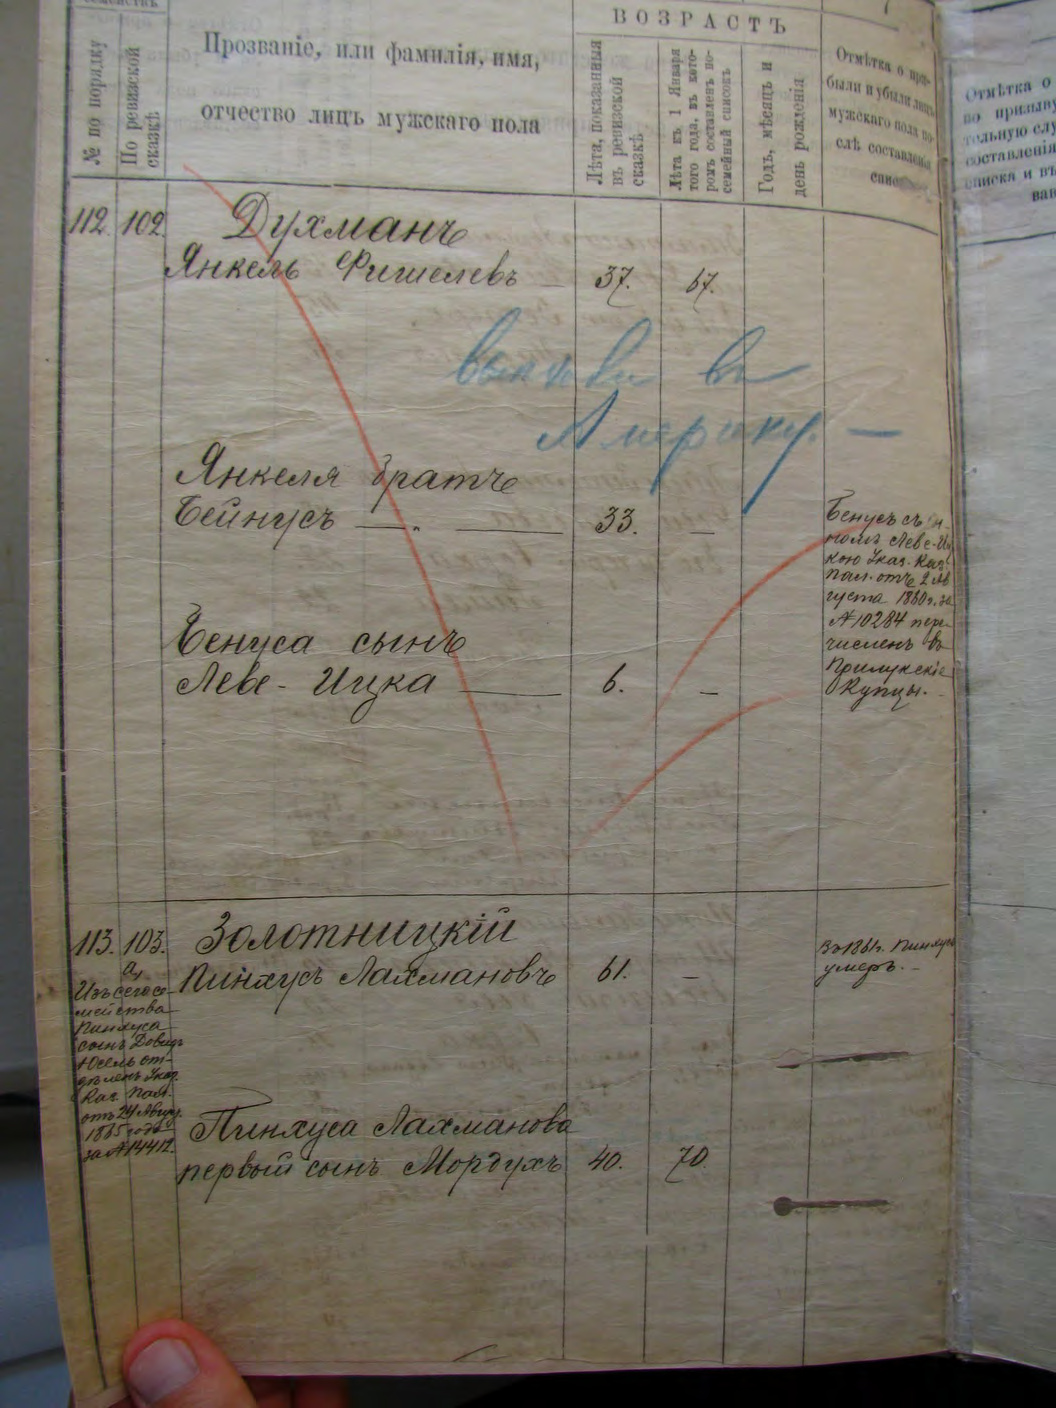 № по порядку
По ревизской
сказкѣ
Прозваніе, или фамилія, имя,
отчество лицъ мужскаго пола
ВОЗРАСТЪ
Лѣта, показанныя
въ ревизской
сказкѣ
Лѣта къ 1 Января
того года, въ кото-
ромъ составленъ по-
семейный списокъ
Годъ, мѣсяцъ и
день рожденія
Отмѣтка о при-
были и убыли лицъ
мужскаго пола по-
слѣ составленія
Отмѣтка о
по призыву
составленія
списка и въ
112. 102.
Духманъ
Янкель Фишелевъ — 37. 67.
въ
Америку. —
Янкеля братъ
Бейнусъ — 33. —
Бенусъ съ
Леве-Иц
кою Указ. Каз.
Пал. отъ 2 Ав
густа 1860 г. за
№ 10284 пере
численъ въ
Прилукскіе
Купцы. —
Бенуса сынъ
Леве-Ицка — 6. —
113. 103.
а,
Золотницкій
Пинхусъ Лахмановъ 61. —
Въ 1861 г. Пинхусъ
умеръ. —
Изъ сего се-
мейства
Пинхуса
сынъ Довидъ
Юсель от-
дѣленъ Указ.
Каз. Пал.
отъ 24 Авгус.
1865 года
за № 14412.
Пинхуса Лахманова
первый сынъ Мордухъ 40. 70.